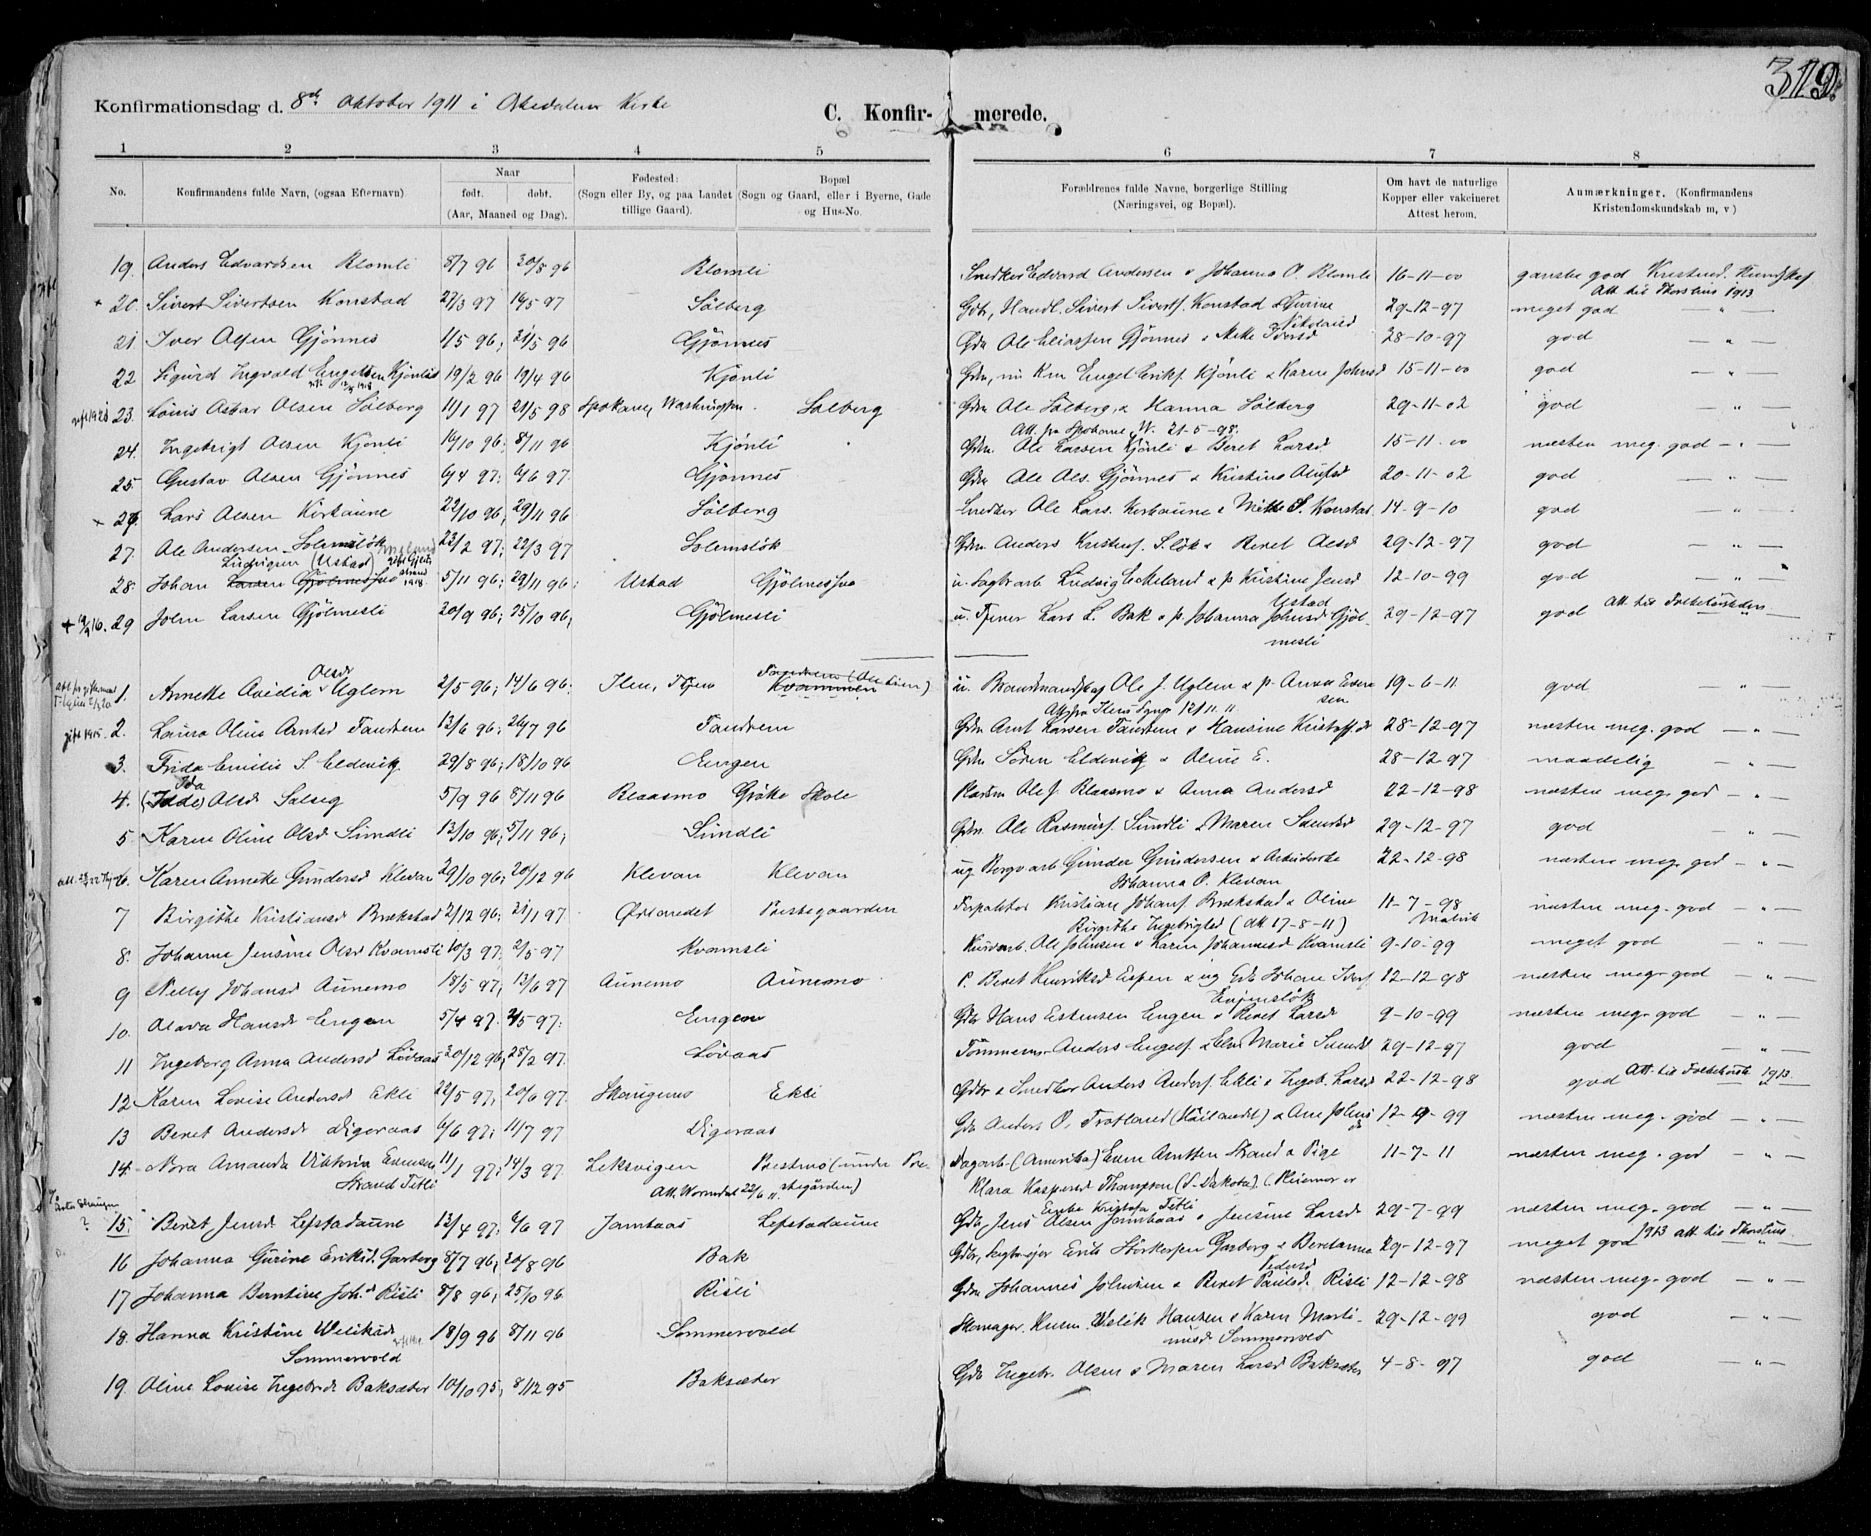 319.
Konfirmationsdag d. 8de Oktober 1911 i Kirke
C. Konfir- merede.
1 2 3 4 5 6 7 8
No. Konfirmandens fulde Navn, (ogsaa Efternavn) Naar født. døbt. (Aar, Maaned og Dag). Fødested: (Sogn eller By, og paa Landet tillige Gaard). Bopæl (Sogn og Gaard, eller i Byerne, Gade og Hus-No. Forældrenes fulde Navne, borgerlige Stilling (Næringsvei, og Bopæl). Om havt de naturlige Kopper eller vakcineret Attest herom. Anmærkninger, (Konfirmandens Kristendomskundskab m, v)
19. Anders Edvardsen Blomli 8/7 96 30/8 96 Blomli Snedker Edvard Andersen & Johanna O. Blomli 16-11-00 ganske god Kristend. Kundskap
Att. til 1913
+ 20. Sivert Sivertsen Konstad 27/3 97 16/5 97 Solberg Gbr, Handl. Sivert Siverts. Konstad & Gurine 29-12-97 meget god — " —
Nikolaisd
21. Iver Olsen Gjønnes 1/5 96; 21/5 96 Gjønnes Gdm Ole Eliassen Gjønnes & Mette Iversd 28-10-97 god — " —
22 Sigurd Ingvald Engelsen Kjønli 19/2 96 19/4 96 Kjønli Engel Eriks. Kjønli & Karen Johnsd 15-11-00 god — " —
23. Louis Oskar Olsen Solberg 11/1 97 21/5 98 Spokane, Washington. Solberg Gdm Ole Solberg, & Hanna Solberg 29-11-02 god — " —
Att. fra Spokane, W. 21-5-98.
24. Ingebrigt Olsen Kjønli 16/10 96; 8/11 96 Kjønli Gdm. Ole Larsen Kjønli & Beret Larsd 15-11-00 næsten meg. god — " —
25. Gustav Olsen Gjønnes 6/4 97; 6/6 97. Gjønnes Gdm Ole Ols. Gjønnes & Kristine Olufsd 20-11-02 god — " —
+ 26. Lars Olsen Kirkaune 22/10 96; 29/11 96 Solberg Snedker Ole Lars. Kirkaune & Mette S. Konstad 14-9-10 god — " —
27. Ole Andersen Solemsløk 23/2 97; 22/3 97 Solemsløk Gdm. Anders Kristens. S.løk & Beret Olsd 29-12-97 god — " —
Ludvigsen (Ustad)
28. Johan Larsen Gjølmesjø 5/11 96; 29/11 96; Ustad Gjølmesjø u. Sagbrarb Ludvig Eckeland & p. Kristine Jensd 12-10-99 god — " —
Ustad
+ 29 John Larsen Gjølmesli 20/9 96; 25/10 96; Gjølmesli u. Tjener Lars L. Bak & p. Johanna Johnsd Gjøl- 29-12-97 god Att. til
mesli
Olsd
1. Annette Ovidia Uglem 2/5 96; 14/6 96. Ilen, Tjem Kvammen u. Brandmandskaf Ole J. Uglem & p. Anna Even 19-6-11 god — " —
sen
2. Laura Oline Arntsd Tandrem 13/6 96; 26/7 96 Tandrem Gdm Arnt Larsen Tandrem & Hansine Kristoffsd 28-12-97 næsten meg. god — " —
3. Frida Emilie S. Eldevik 29/8 96; 18/10 96 Engen Gdm. Søren Eldevik & Oline E. 28-12-97 maadelig — " —
Ida
4. (Idde) Olsd Salseg 5/9 96 8/11 96 Blaasmo Grøtte Skole Ole J. Blaasmo & Anna Andersd 22-12-98 næsten meg. god — " —
5 Karen Oline Olsd Sundli 13/10 96; 5/11 96; Sundli Gdm. Ole Rasmus. Sundli & Maren Svendsd 29-12-97 god — " —
6. Karen Annette Gundersd Klevan 29/10 96; 20/12 96 Klevan Klevan ug Bergv arb Gunder Gundersen & Arbeiderske 22-12-98 næsten meg. god — " —
Johanna O. Klevan
7 Birgithe Kristiansd Brækstad 2/12 96; 21/1 97. Ørlandet Prestegaarden Kristian Johans. Brækstad & Oline 11-7-98 næsten meg. god — " —
Birgithe Ingebrigtsd (Att 17-8-11) Malvik
8. Johanna Jensine Olsd Kvamsli 10/3 97; 2/5 97 Kvamsli Ole Johnsen & Karen Johannesd Kvamsli 9-10-99 meget god — " —
9 Nelly Johansd Aunemo 18/5 97; 13/6 97 Aunemo Aunemo P. Beret Henriksd Espen & ug Gdb Johan Ivers. 12-12-98 næsten meg. god — " —
10. Olava Hansd Engen 5/4 97. 2/5 97. Engen Gdb Hans Estensen Engen & Beret Larsd 9-10-99 næsten meg. god — " —
11 Ingeborg Anna Andersd Løvaas 30/12 96, 28/2 97. Løvaas Tømmerm. Anders Engels. & Else Marie Svendsd 29-12-97 god — " —
12 Karen Lovise Andersd Ekli 22/5 97; 20/6 97. Ekli Gdbr & Snedker Anders Anders. Ekli & Ingeb. Larsd 22-12-98 god Att. til 1913
13 Beret Andersd Digeraas 6/6 97; 11/7 97 Digeraas Gdb Anders O. & Ane Johns 12-9-99 næsten meg. god — " —
14. Nora Amanda Viktoria Evensen 11/1 97; 14/3 97. Leksvigen Prestmo (under Pre- Dagarb (Amerika) Even Arntsen Strand & Pige 11-7-11 næsten meg. god — " —
Strand Tetli Att. 22/6 11. stegården) Klara Kaspersd Thompson (S. Dakota).
Tetli
15. Beret Jensd Lefstadaune 13/4 97; 6/6 97 Jamtaas Lefstadaune Gdb Jens Olsen Jamtaas & Jensine Larsd 29-7-99 næsten meg. god — " —
16 Johanna Gurine Eriksd. Garberg 8/7 96; 20/8 96 Bak Gdbr, Sagbr. ejer Erik Størkersen Garberg & Beretanna 29-12-97 meget god 1913 att. til
Pedersd
17 Johanna Berntine Joh.d Risli 8/8 96; 25/10 96. Risli Gdm Johannes Johnsen & Beret Paulsd Risli 12-12-98 næsten meg. god — " —
18. Hanna Kristine Velikd 18/9 96 8/11 96 Sommervold Skomager. Velik Hansen & Karen Marti- 29-12-99 god — " —
Sommervold nusd Sommervold
19. Oline Lovise Ingebr.d Baksæter 10/10 95; 8/12 95 Baksæter Gdb Ingebr. Olsen & Maren Larsd Baksæter 4-8-97 god — " —